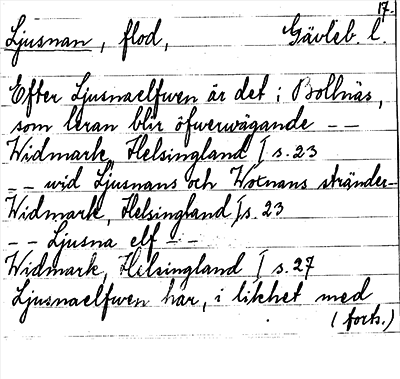 17.
Ljusnan, flod, Gävleb. l.
Efter Ljusnaelfwen är det i Bollnäs,
som leran blir öfwerwägande – –
Widmark, Helsingland I s. 23
– – wid Ljusnans och Woxnans stränder –
Widmark, Helsingland I, s. 23
– – Ljusna elf – –
Widmark, Helsingland I s. 27
Ljusnaelfwen har, i likhet med
(forts.)